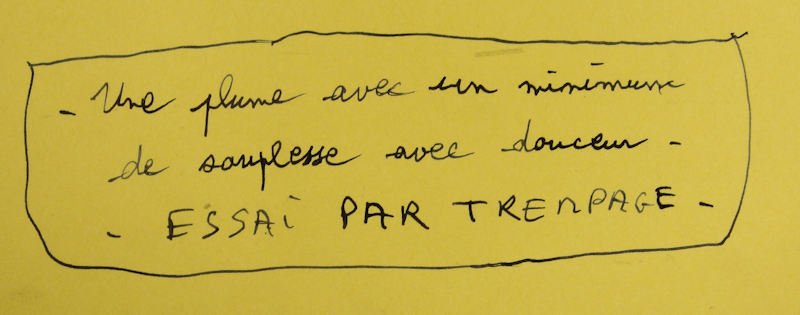 - Une plume avec un minimum
de souplesse avec douceur -
- ESSAi PAR TREMPAGE -